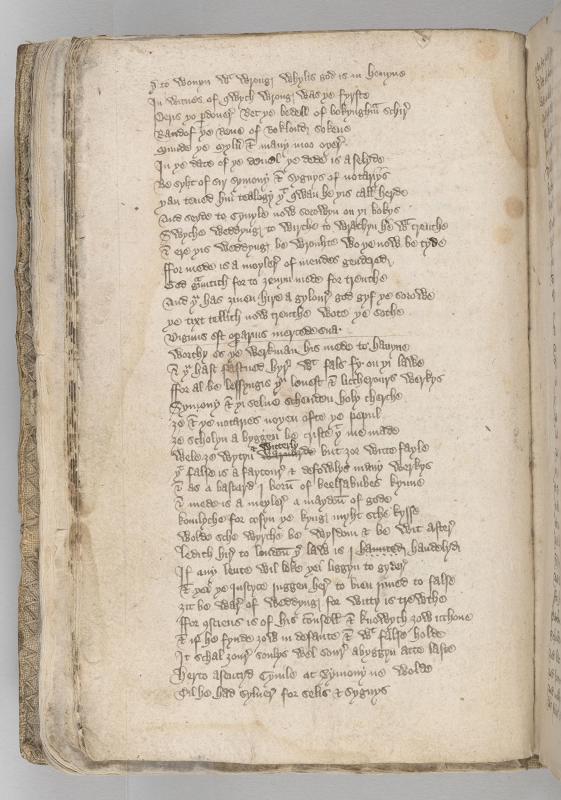 & to wonyn wt wrong whylis god is in hevyne
In witnes of qwych wrong was ye fyrste
Peris ye pdoner Bet ye bedell of bokynghm schir
Randof ye Reve of Rokland sokene
Munde ye mylner & many moo oyer
In ye date of ye devol ye dede is aselyde
Be syht of sir symony & sygnys of notarys
yan tened him teology yt qwan he yis tale herde
And seyde to Cyvyle now sorowyn on yi bokys
Swyche weddyng to wirche to wrathyn he wt treuthe
& ere yis weddyng be wrouhte wo ye now be tyde
ffor mede is a moyler of mendes gendred
God grauntith for to zevyn mede for treuthe
And yu has ziven hire a gylour god gyf ye sorowe
ye tixt tellith now treuthe wote ye sothe
Dignus est operarius mercede sua
Worthy os ye werkman his mede to havyne
& yu hast fastned hyr wt fals fy on yi lawe
ffor al be lessyngis yu levest & litcherours werkys
Symony & yi selve schenden holy cherche
ze & ye notaries noyen ofte ye pepul
ze scholyn a byggen be criste yt me made
Wele ze wytyn & witterly but zor witte fayle
yt false is a faytour & defowlyd in my werkys
& as a bastard I born of beelsabubes kynne
& mede is a moyler a mayden of gode
komlyche for cosyn ye kyng myht sche kysse
Wolde sche wyrche be wysdom & be wit after
Ledith hir to london yer law is I handelyd
If any leute wil loke yei liggyn to gyder
& yei ye Justyce juggen her to bien joined to false
zit be war of weddyng for witty is trewthe
ffor consciens is of his consell & knowyth zow ichone
& if he fynde zow in defaute & wt false holde
It schal zour soulys wel sour abyggyn atte laste
Herto asentyd Cyvile at symony ne wolde
Til he had sylver for selis & sygnys